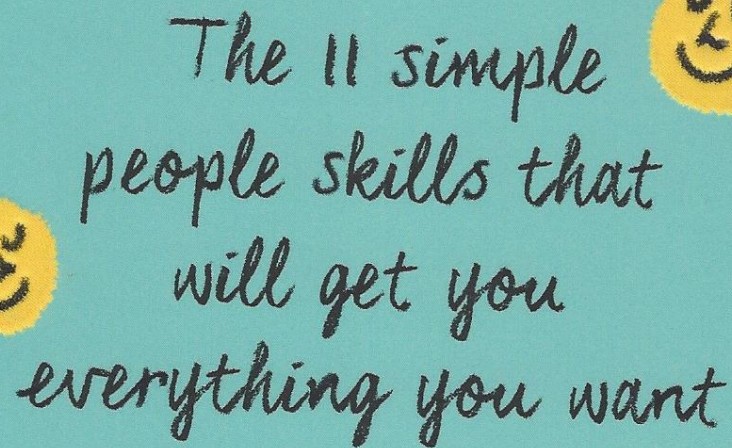 The 11 simple
people skills that
will get you
everything you want